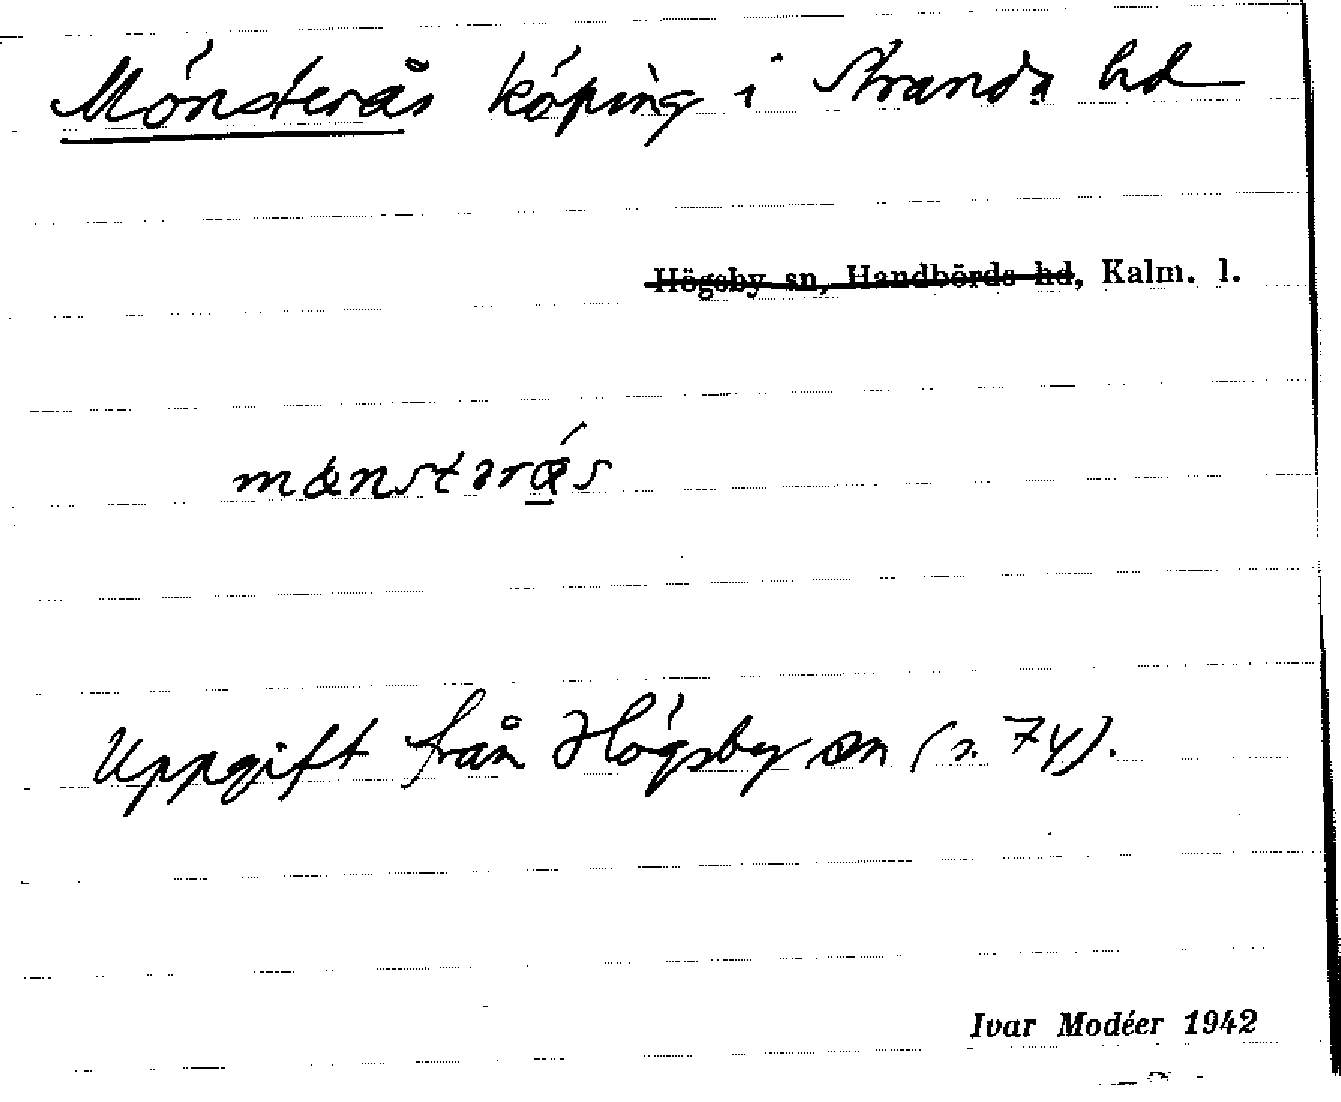 Mönsterås köping i Stranda hd
Högsby sn, Handbörds hd, Kalm. l.
mønstərås
Uppgift från Högsby sn (s. 74).
Ivar Modéer 1942